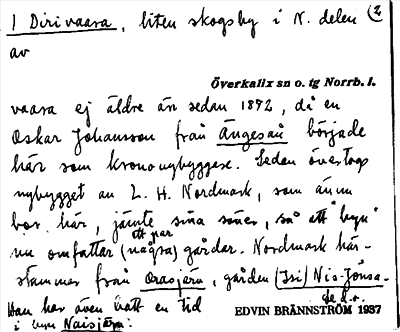 1 Dirivaara, liten skogsby i N. delen (2
av
Överkalix sn o. tg Norrb. l.
vaara ej äldre än sedan 1892, då en
Oskar Johansson från Ängesån började
här som kronobyggare. Sedan övertogs
nybygget av L. H. Nordmark, som ännu
bor här, jämte sina söner, så att "byn"
ett par
nu omfattar (några) gårdar. Nordmark här-
stammer från Orasjärv, gården (Isi) Nis-Jönsa.
Han har även haft en tid
se d.o.
i byn Naisjärv.
EDVIN BRÄNNSTRÖM 1937